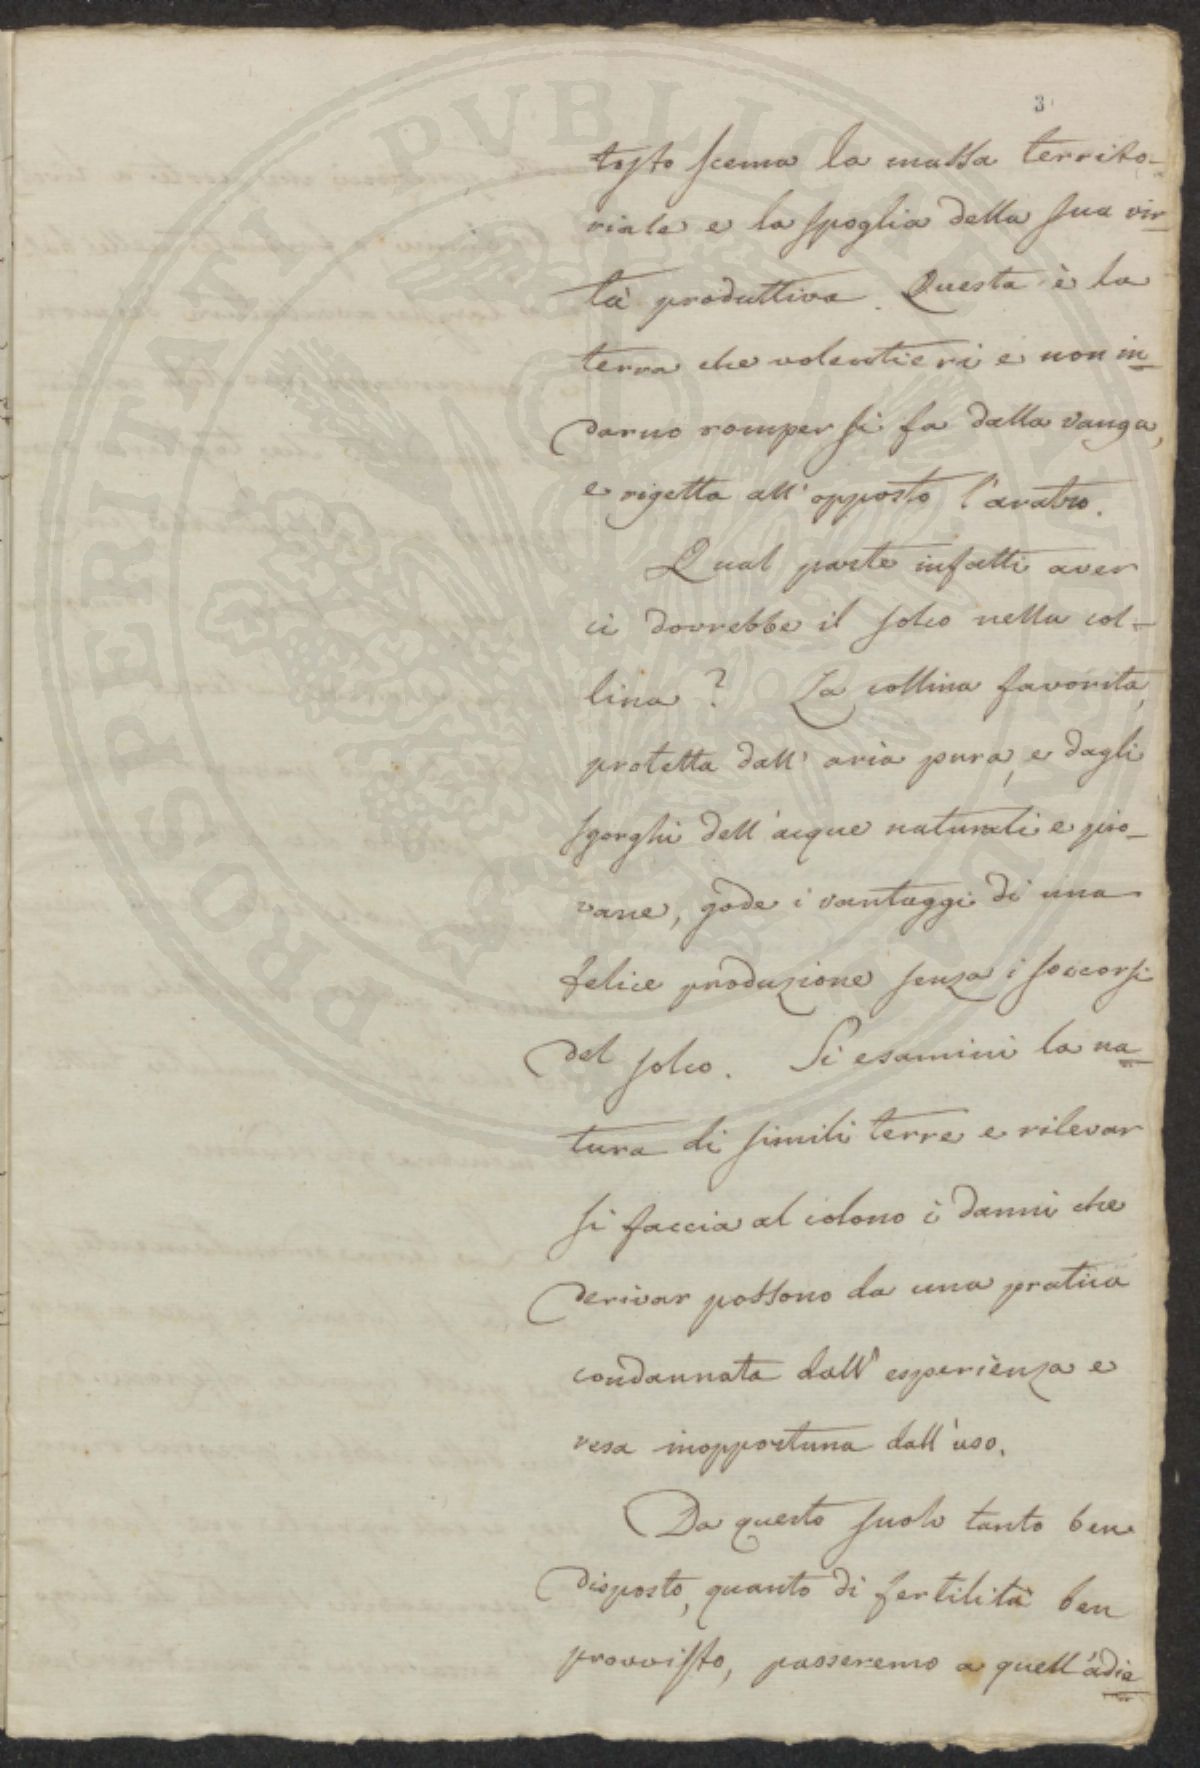 3
tosto scema la massa territo-
riale e la spoglia della sua vir-
tù produttiva. Questa è la
terra che volentieri e non in-
darno romper si fa dalla vanga,
e rigetta all'opposto l'aratro.
Qual parte infatti aver
ci dovrebbe il solco nella col-
lina? La collina favorita,
protetta dall'aria pura, e dagli
sgorghi dell'acque naturali e pio-
vane, gode i vantaggi di una
felice produzione senza i soccorsi
del solco. Si esamini la na-
tura di simili terre e rilevar
si faccia al colono i danni che
derivar possono da una pratica
condannata dall'esperienza e
resa inopportuna dall'uso.
Da questo suolo tanto ben
disposto, quanto di fertilità ben
provvisto, passeremo a quell'adia-
PROSPERITATI PUBLICAE